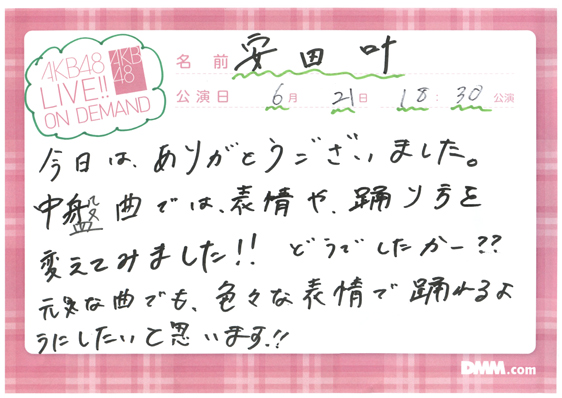 AKB48
LIVE!!
ON DEMAND
AKB
48
名前 安田叶
公演日 6月 21日 18:30 公演
今日は、ありがとうございました。
中盤曲では、表情や、踊り方を
変えてみました!! どうでしたかー??
元気な曲でも、色々な表情で踊れるよ
うにしたいと思います!!
DMM.com